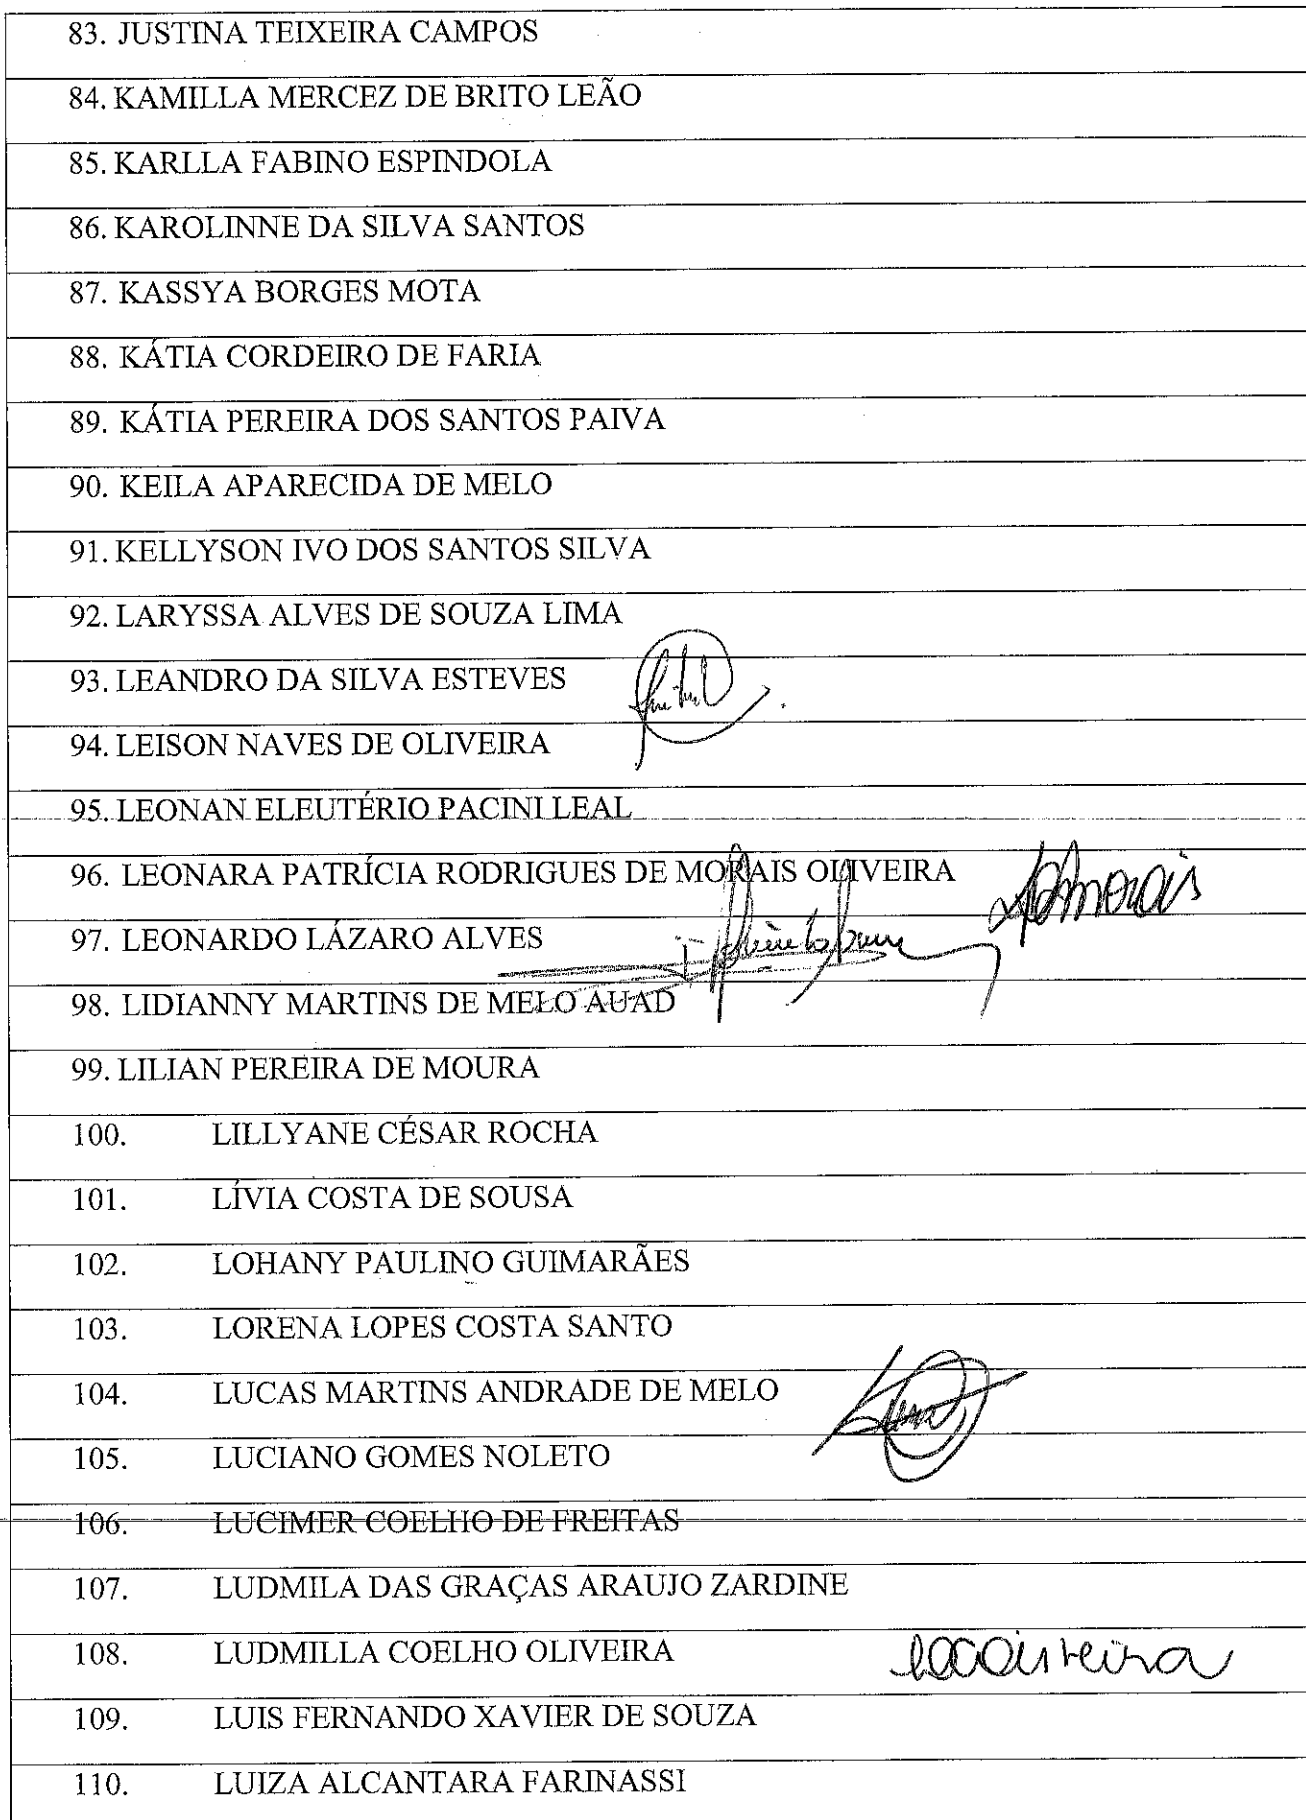 83. JUSTINA TEIXEIRA CAMPOS
84. KAMILLA MERCEZ DE BRITO LEÃO
85. KARLLA FABINO ESPINDOLA
86. KAROLINNE DA SILVA SANTOS
87. KASSYA BORGES MOTA
88. KÁTIA CORDEIRO DE FARIA
89. KÁTIA PEREIRA DOS SANTOS PAIVA
90. KEILA APARECIDA DE MELO
91. KELLYSON IVO DOS SANTOS SILVA
92. LARYSSA ALVES DE SOUZA LIMA
93. LEANDRO DA SILVA ESTEVES
94. LEISON NAVES DE OLIVEIRA
95. LEONAN ELEUTÉRIO PACINI LEAL
96. LEONARA PATRÍCIA RODRIGUES DE MORAIS OLIVEIRA
97. LEONARDO LÁZARO ALVES
98. LIDIANNY MARTINS DE MELO AUAD
99. LILIAN PEREIRA DE MOURA
100. LILLYANE CÉSAR ROCHA
101. LÍVIA COSTA DE SOUSA
102. LOHANY PAULINO GUIMARÃES
103. LORENA LOPES COSTA SANTO
104. LUCAS MARTINS ANDRADE DE MELO
105. LUCIANO GOMES NOLETO
106. LUCIMER COELHO DE FREITAS
107. LUDMILA DAS GRAÇAS ARAUJO ZARDINE
108. LUDMILLA COELHO OLIVEIRA
109. LUIS FERNANDO XAVIER DE SOUZA
110. LUIZA ALCANTARA FARINASSI